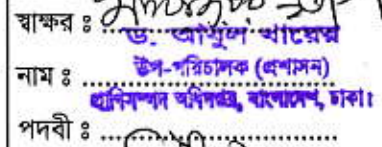 স্বাক্ষর ঃ
ড. আবুল খায়ের
নাম ঃ
উপ-পরিচালক (প্রশাসন)
প্রাণিসম্পদ অধিদপ্তর, বাংলাদেশ, ঢাকা।
পদবী ঃ